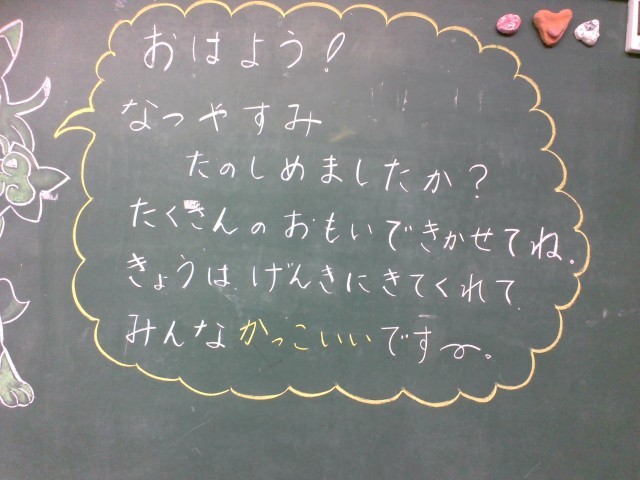 おはよう!
なつやすみ
たのしめましたか?
たくさんのおもいできかせてね。
きょうは、げんきにきてくれて
みんなかっこいいです〜。